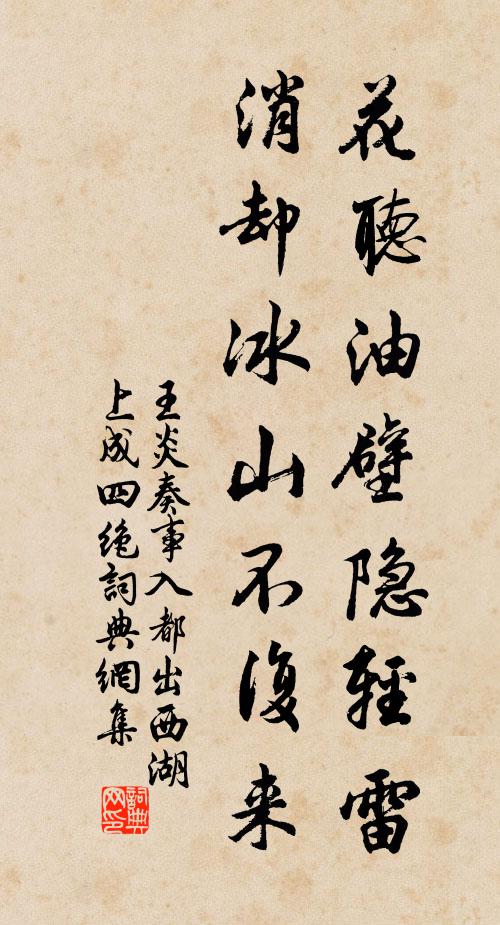 花聽油壁隐輕雷
消却冰山不復来
王炎奏事入都出西湖
上成四絶詞典網集
詞典
网印